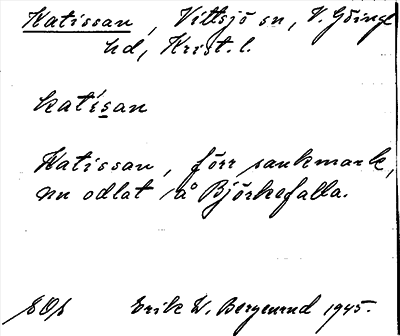 Katissan, Vittsjö sn, V. Göinge
hd, Krist. l.
katísan
Katissan, förr sankmark,
nu odlat å Björkefalla.
Erik W. Bergenrud 1945.